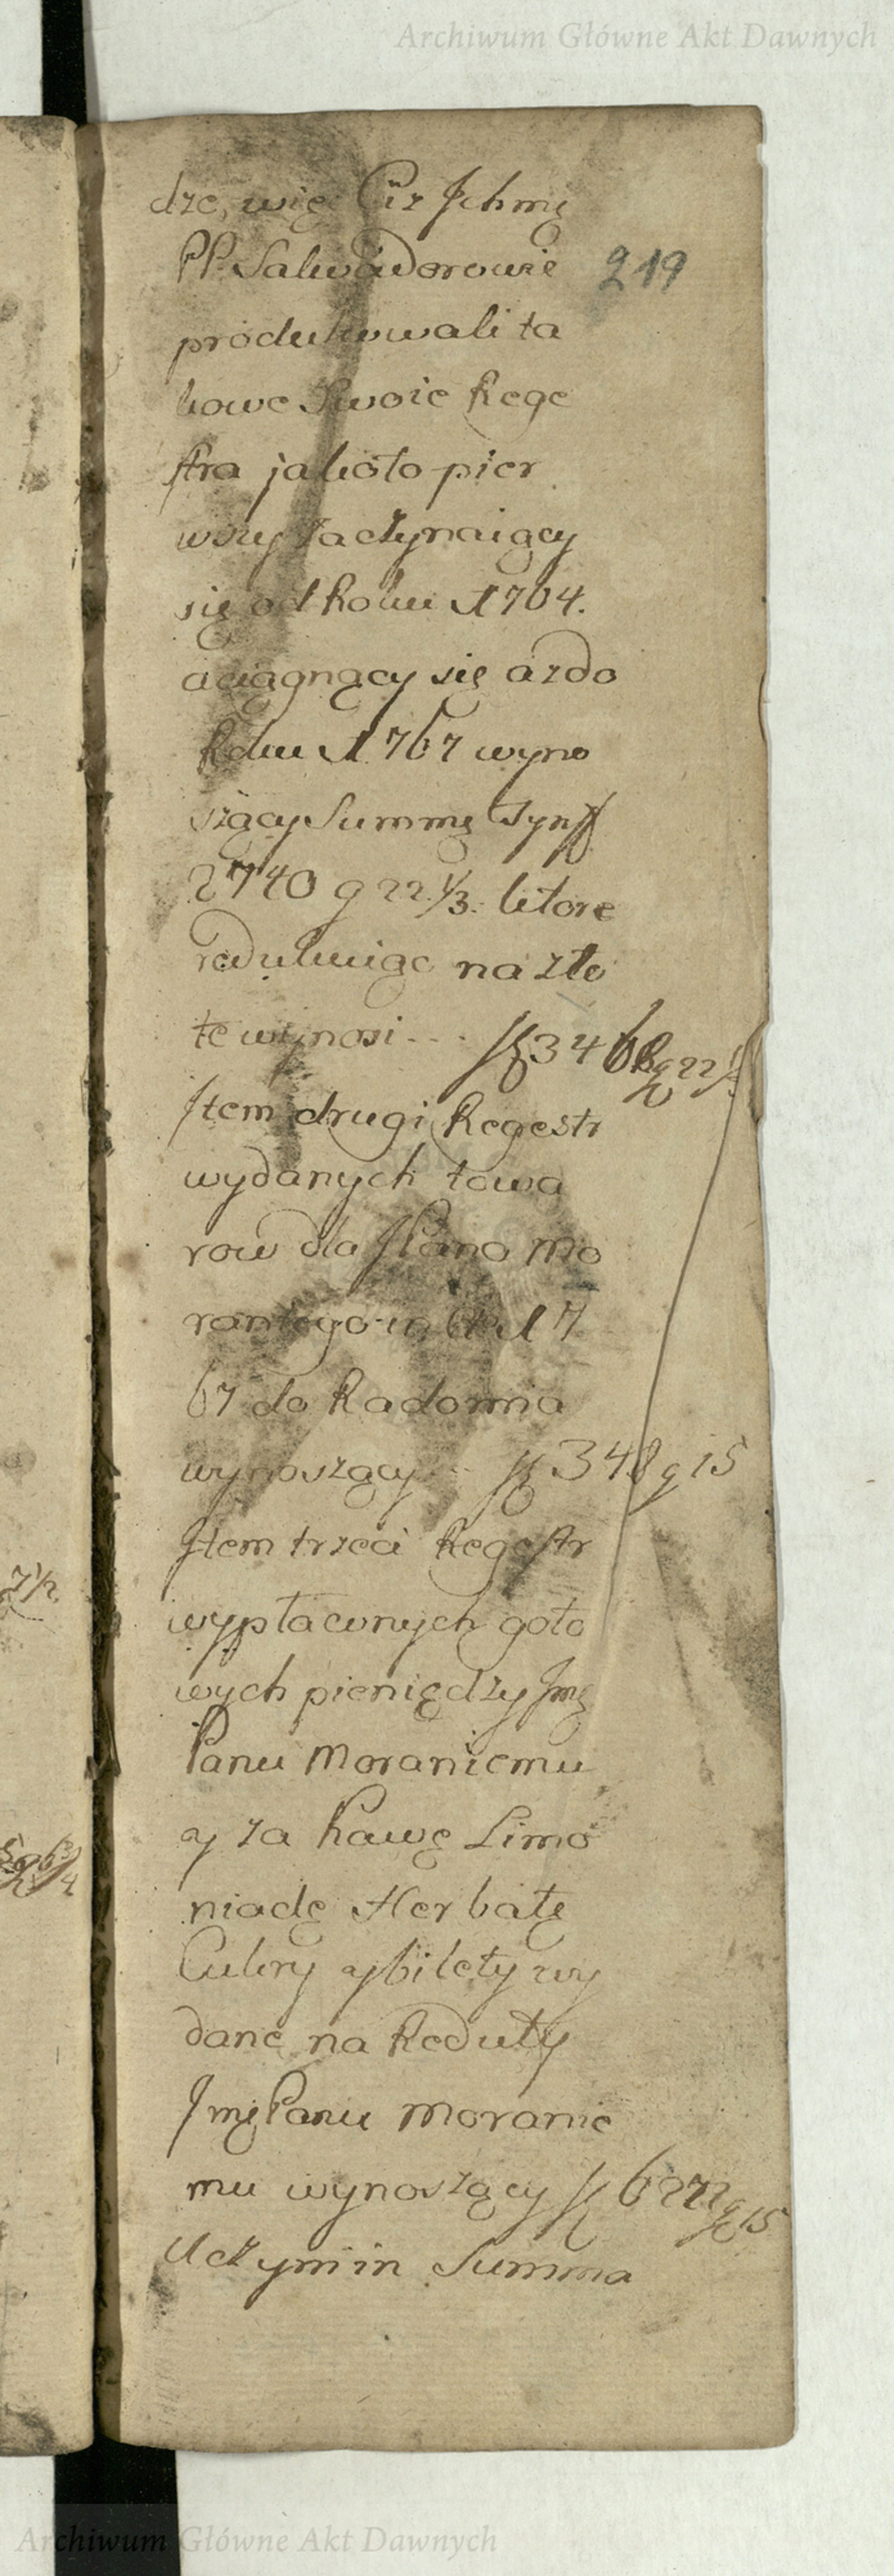 Archiwum Główne Akt Dawnych
dze, więc Ciż Jchmę
PP. Salwadorowie 219
produkowali ta
kowe Swoie Rege
stra jakoto pier
wszy Zaczynaiący
się od Roku 1764.
aciągnący się aż do
Roku 1767 wyno
szący Summę Tynff
2740 g 22 1/3. ktore
redukuiąc na zło
te wynosi...
Jtem drugi Regestr
wydanych towa
row dla JPana Mo
raniego in Ao 17
67 do Radomia
wynoszący .. ff 348 g 15
Jtem trzeci Regestr
wypłaconych goto
wych pieniędzy Jmę
Panu Moraniemu
ÿ za Kawę Limo
niadę Herbatę
Cukry ÿ bilety wy
dane na Reduty
Jmę Panu Moranie
mu wynoszący ff 6272 g 15
Uczyni in Summa
7 1/2
Archiwum Główne Akt Dawnych